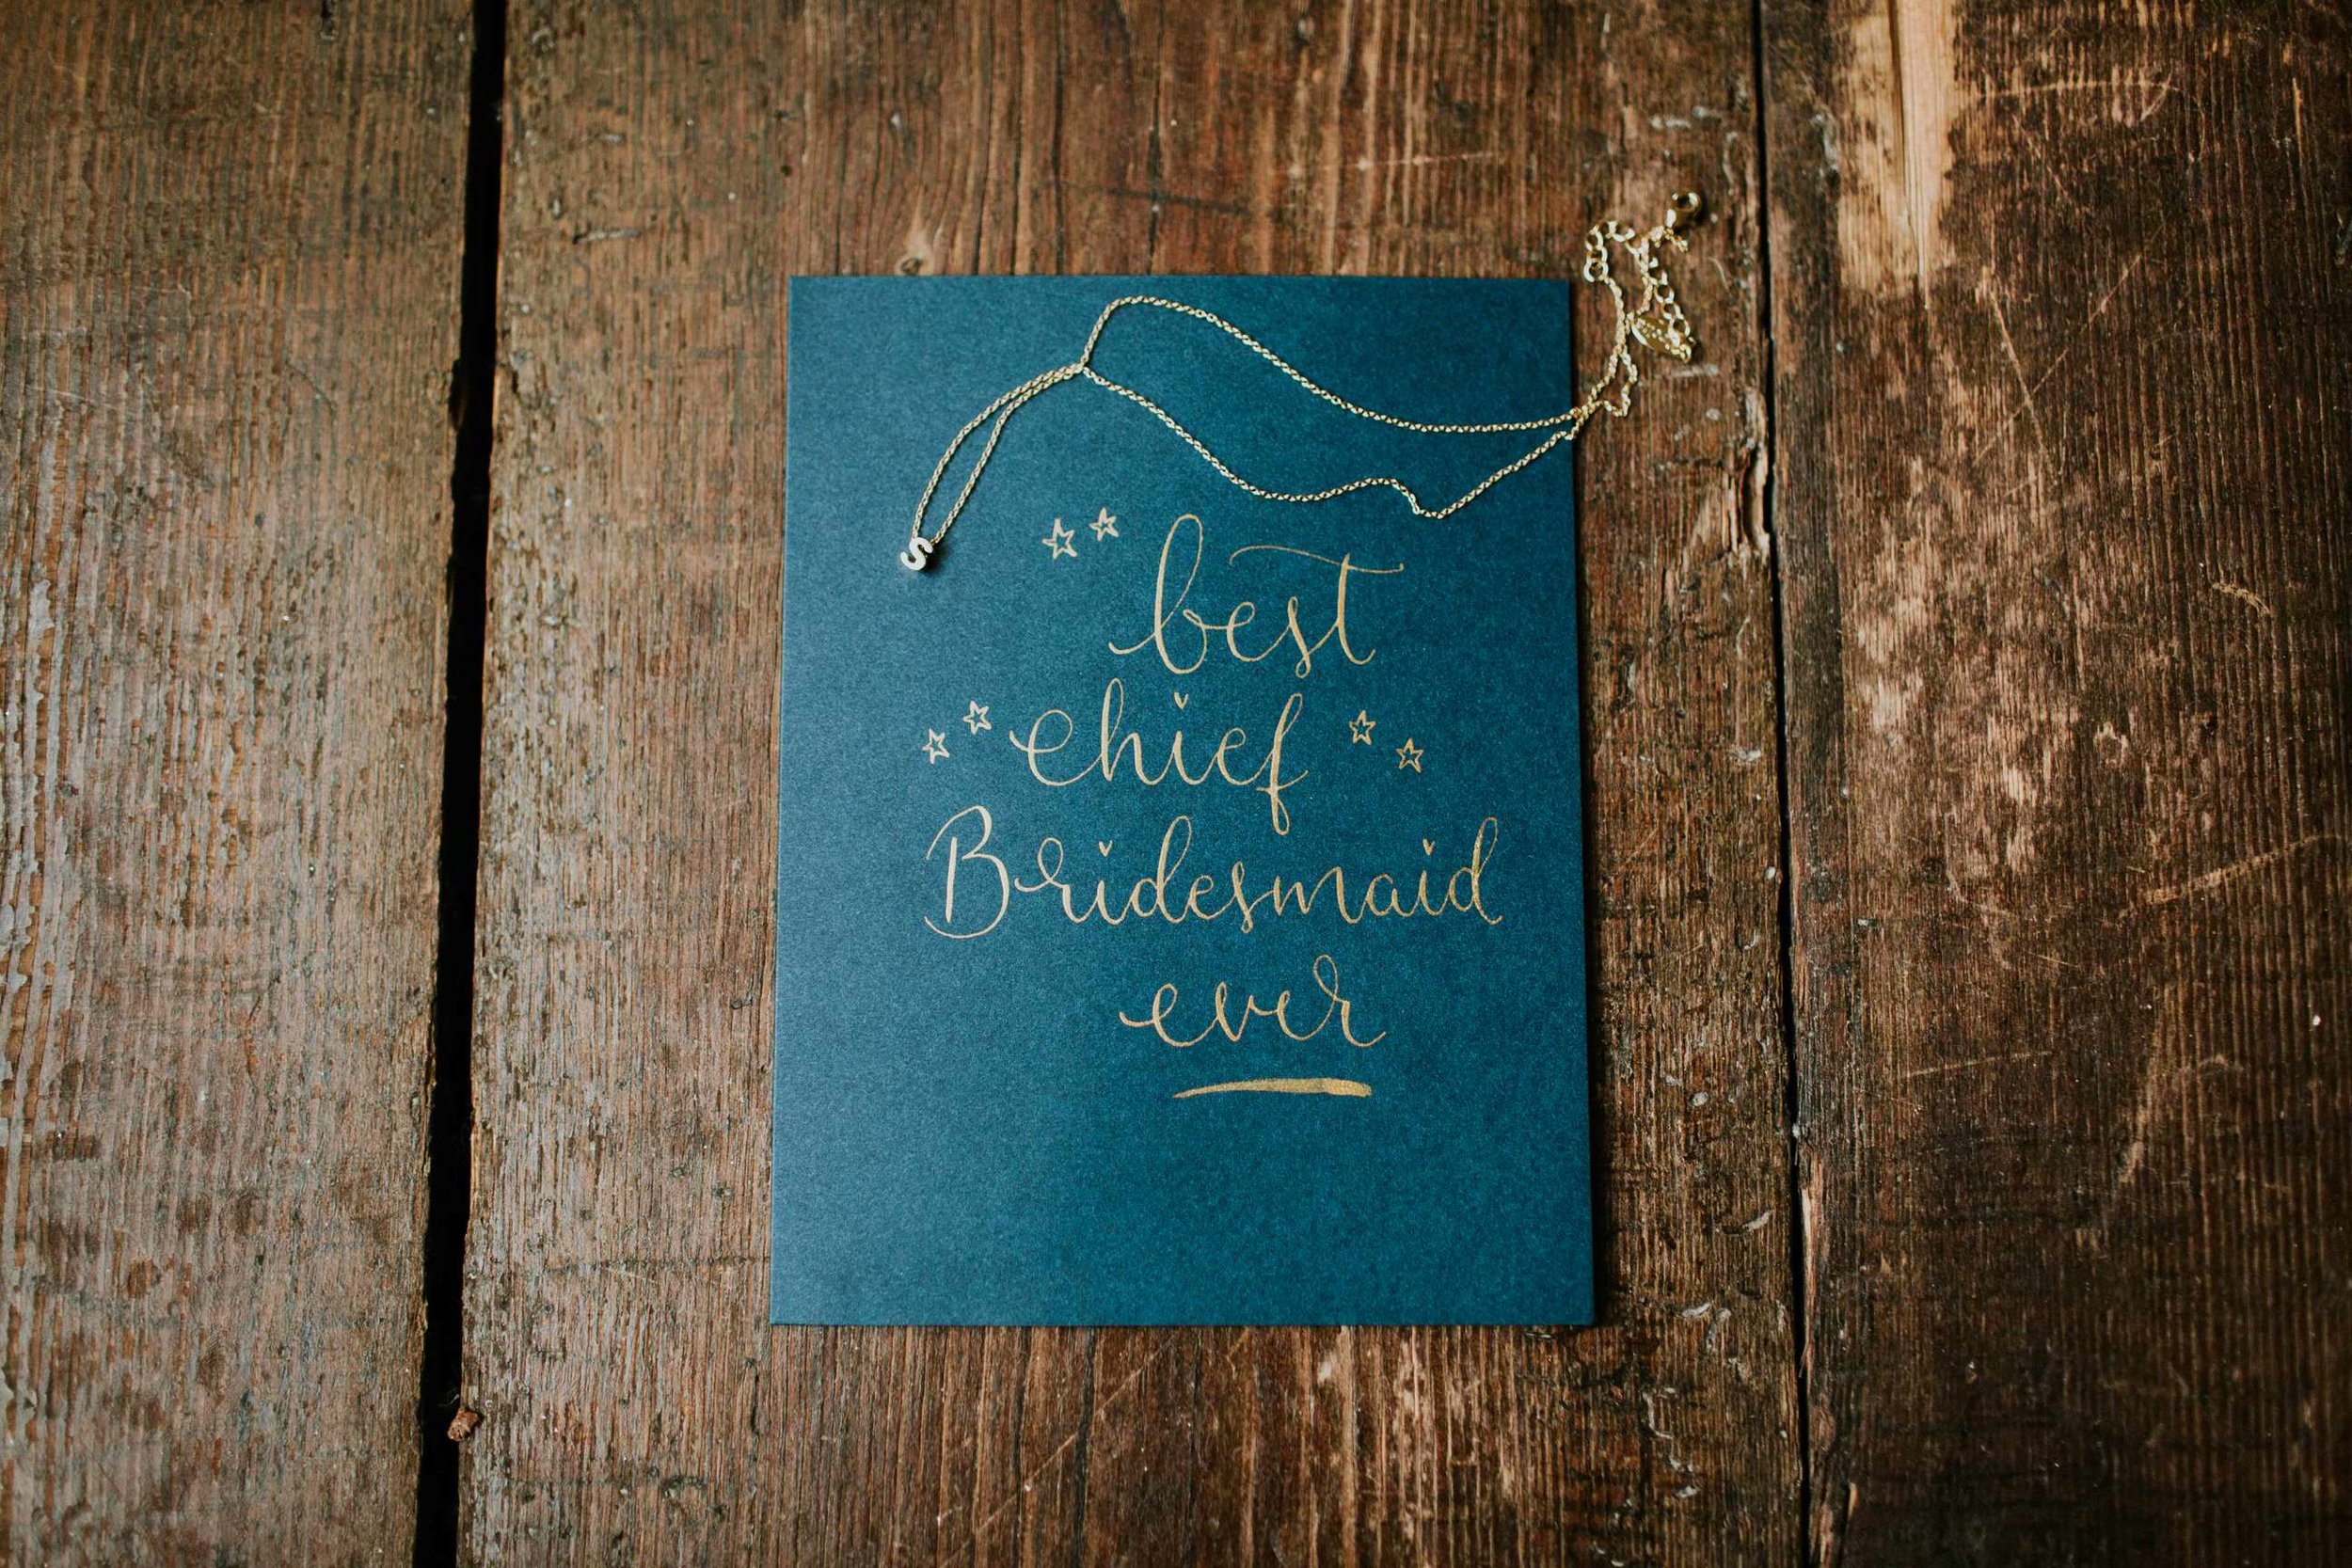 S
best
chief
Bridesmaid
ever